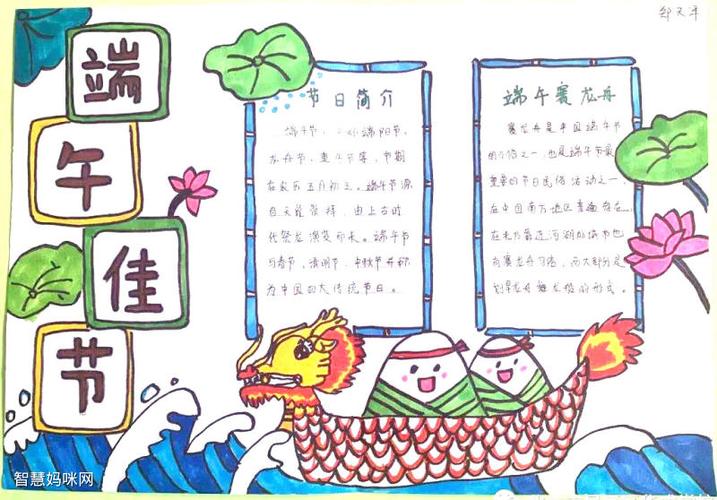 端
午
佳
节
郑天泽
节日简介
端午节，又称端阳节，
龙舟节，重午节等，节期
在农历五月初五。端午节源
自天象崇拜，由上古时
代祭龙演变而来。端午节
与春节、清明节、中秋节并称
为中国四大传统节日。
端午赛龙舟
赛龙舟是中国端午节
的习俗之一，也是端午节最
重要的节日民俗活动之一，
在中国南方地区普遍存在，
在北方靠近河湖的城市也
有赛龙舟习俗，而大部分是
划旱龙舟舞龙船的形式。
智慧妈咪网